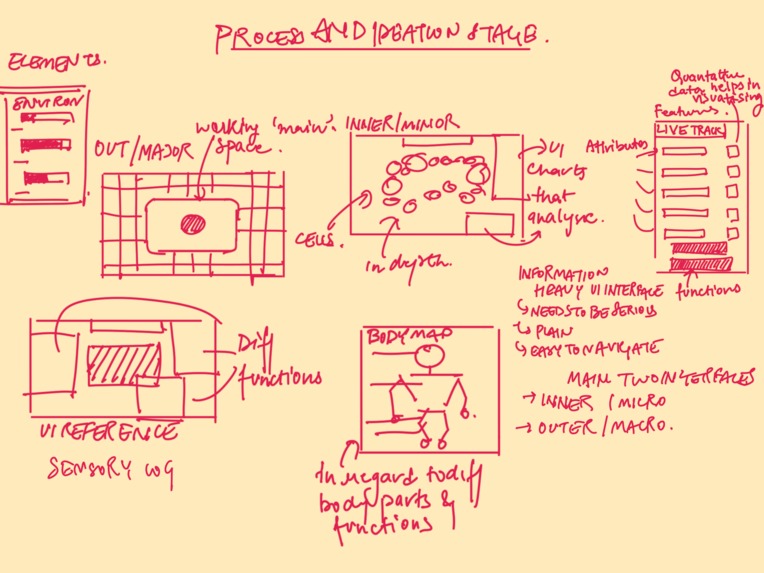 PROCESS AND IDEATION STAGE.
ELEMENTS.
ENVIRON
OUT/MAJOR
working 'main'.
space.
INNER/MINOR
CELLS.
in depth.
UI
charts
that
analyse.
Quantative
data helps in
visualising
Features.
LIVE TRACK
Attributes
functions
INFORMATION
HEAVY UI INTERFACE
NEEDS TO BE SERIOUS
PLAIN
EASY TO NAVIGATE
MAIN TWO INTERFACES
→ INNER / MICRO
→ OUTER / MACRO.
Diff
functions
UI REFERENCE
SENSORY LOG
BODY MAP
In regard to diff
body parts &
functions